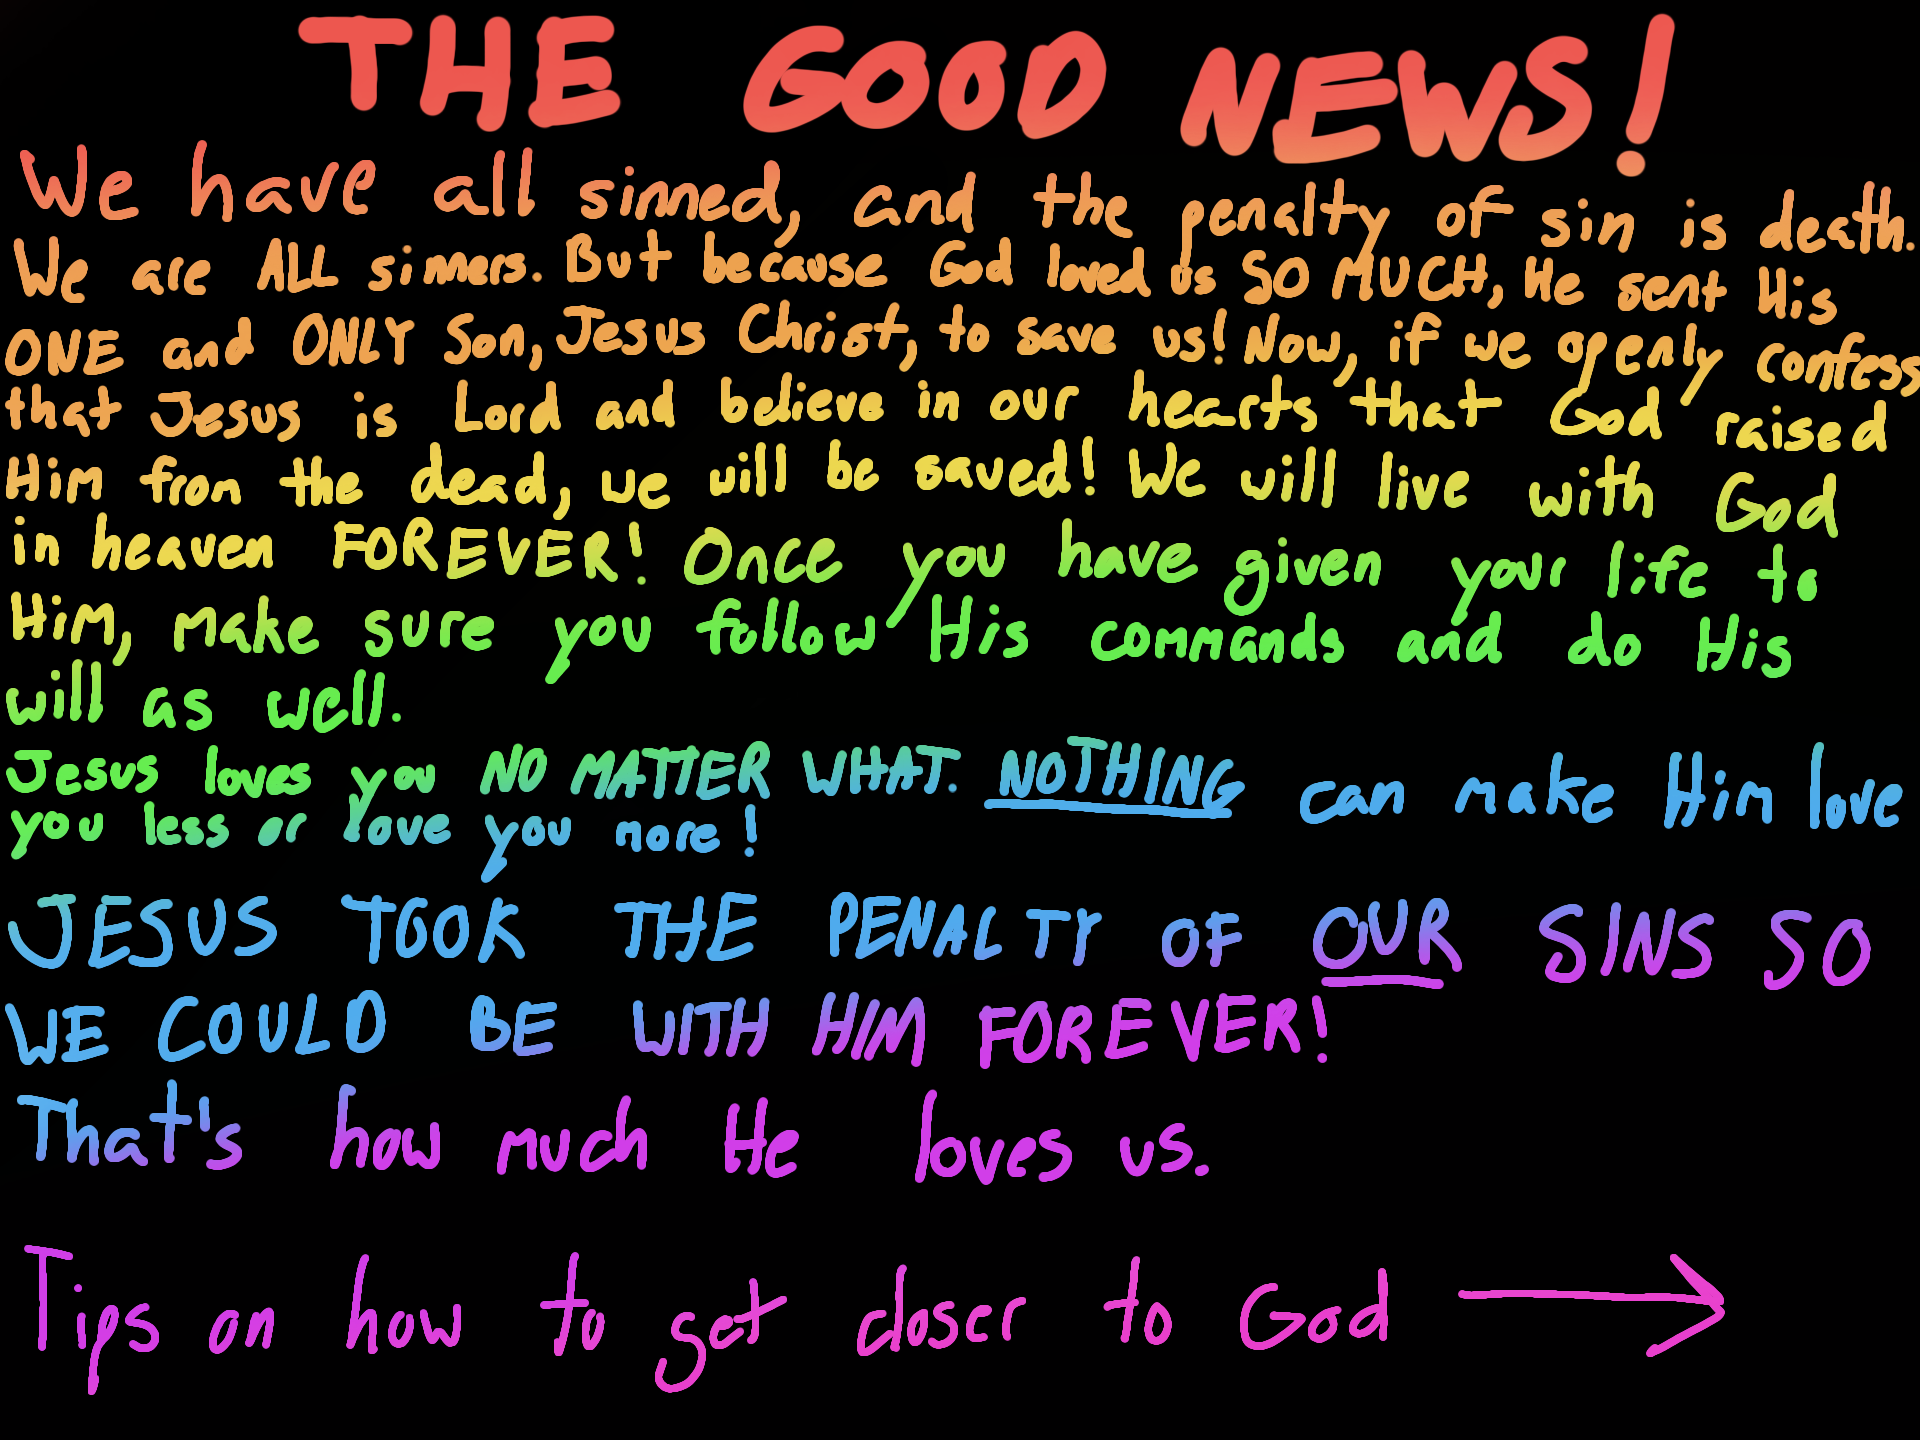 THE GOOD NEWS!
We have all sinned, and the penalty of sin is death.
We are ALL sinners. But because God loved us SO MUCH, He sent His
ONE and ONLY Son, Jesus Christ, to save us! Now, if we openly confess
that Jesus is Lord and believe in our hearts that God raised
Him from the dead, we will be saved! We will live with God
in heaven FOREVER! Once you have given your life to
Him, make sure you follow His commands and do His
will as well.
Jesus loves you NO MATTER WHAT. NOTHING can make Him love
you less or love you more!
JESUS TOOK THE PENALTY OF OUR SINS SO
WE COULD BE WITH HIM FOREVER!
That's how much He loves us.
Tips on how to get closer to God